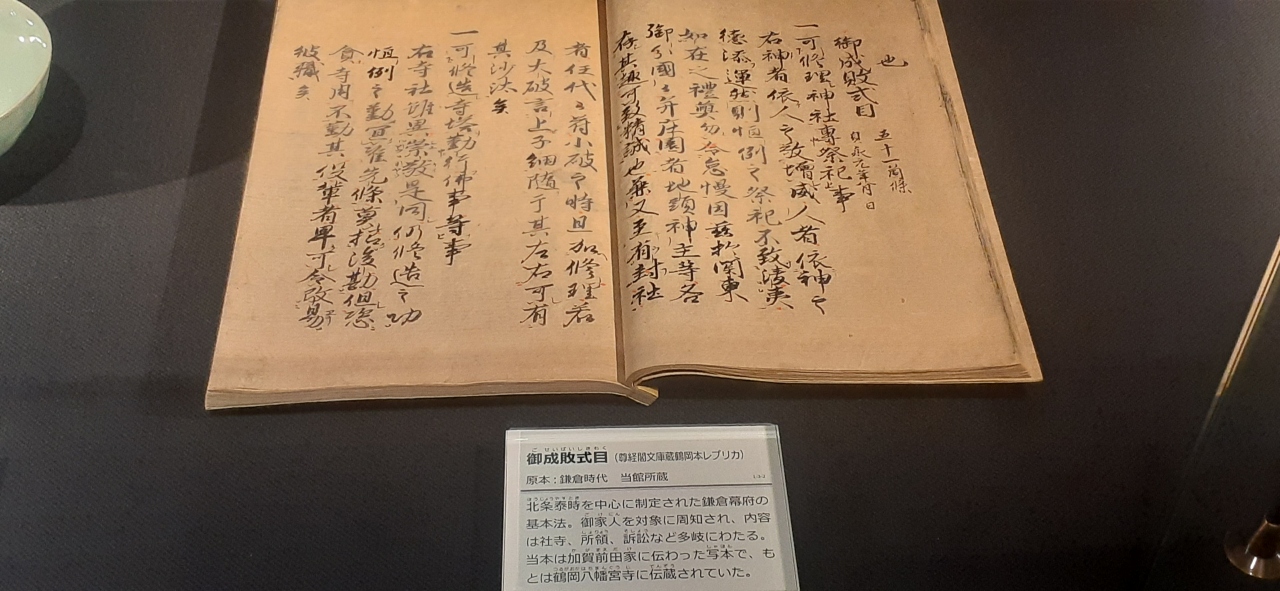 也
御成敗式目 五十一箇條
貞永元年月日
一可修理神社專祭祀事
右神者依人之敬増威人者依神之
徳添運然則恒例之祭祀不致陵夷
如在之禮奠勿令怠慢因茲於関東
御分國々并庄園者地頭神主等各
存其趣可致精誠也兼又至有封社
者任代々符小破之時且加修理若
及大破言上子細随于其左右可有
其沙汰矣
一可修造寺塔勤行佛事等事
右寺社雖異崇敬是同仍修造之功
恒例之勤宜准先條莫招後勘但恣
貪寺用不勤其役輩者早可令改易
彼職矣
御成敗式目(尊経閣文庫蔵鶴岡本レプリカ)
原本:鎌倉時代 当館所蔵
北条泰時を中心に制定された鎌倉幕府の
基本法。御家人を対象に周知され、内容
は社寺、所領、訴訟など多岐にわたる。
当本は加賀前田家に伝わった写本で、も
とは鶴岡八幡宮寺に伝蔵されていた。